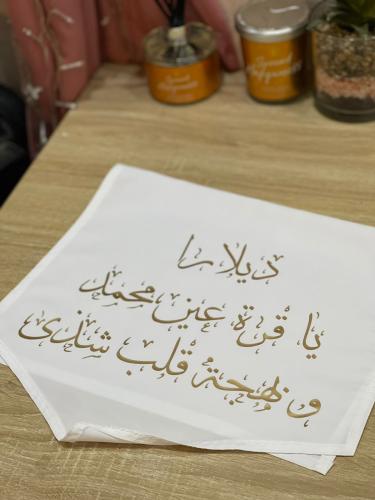 ديلارا
يا قرة عين محمد
و بهجة قلب شذى